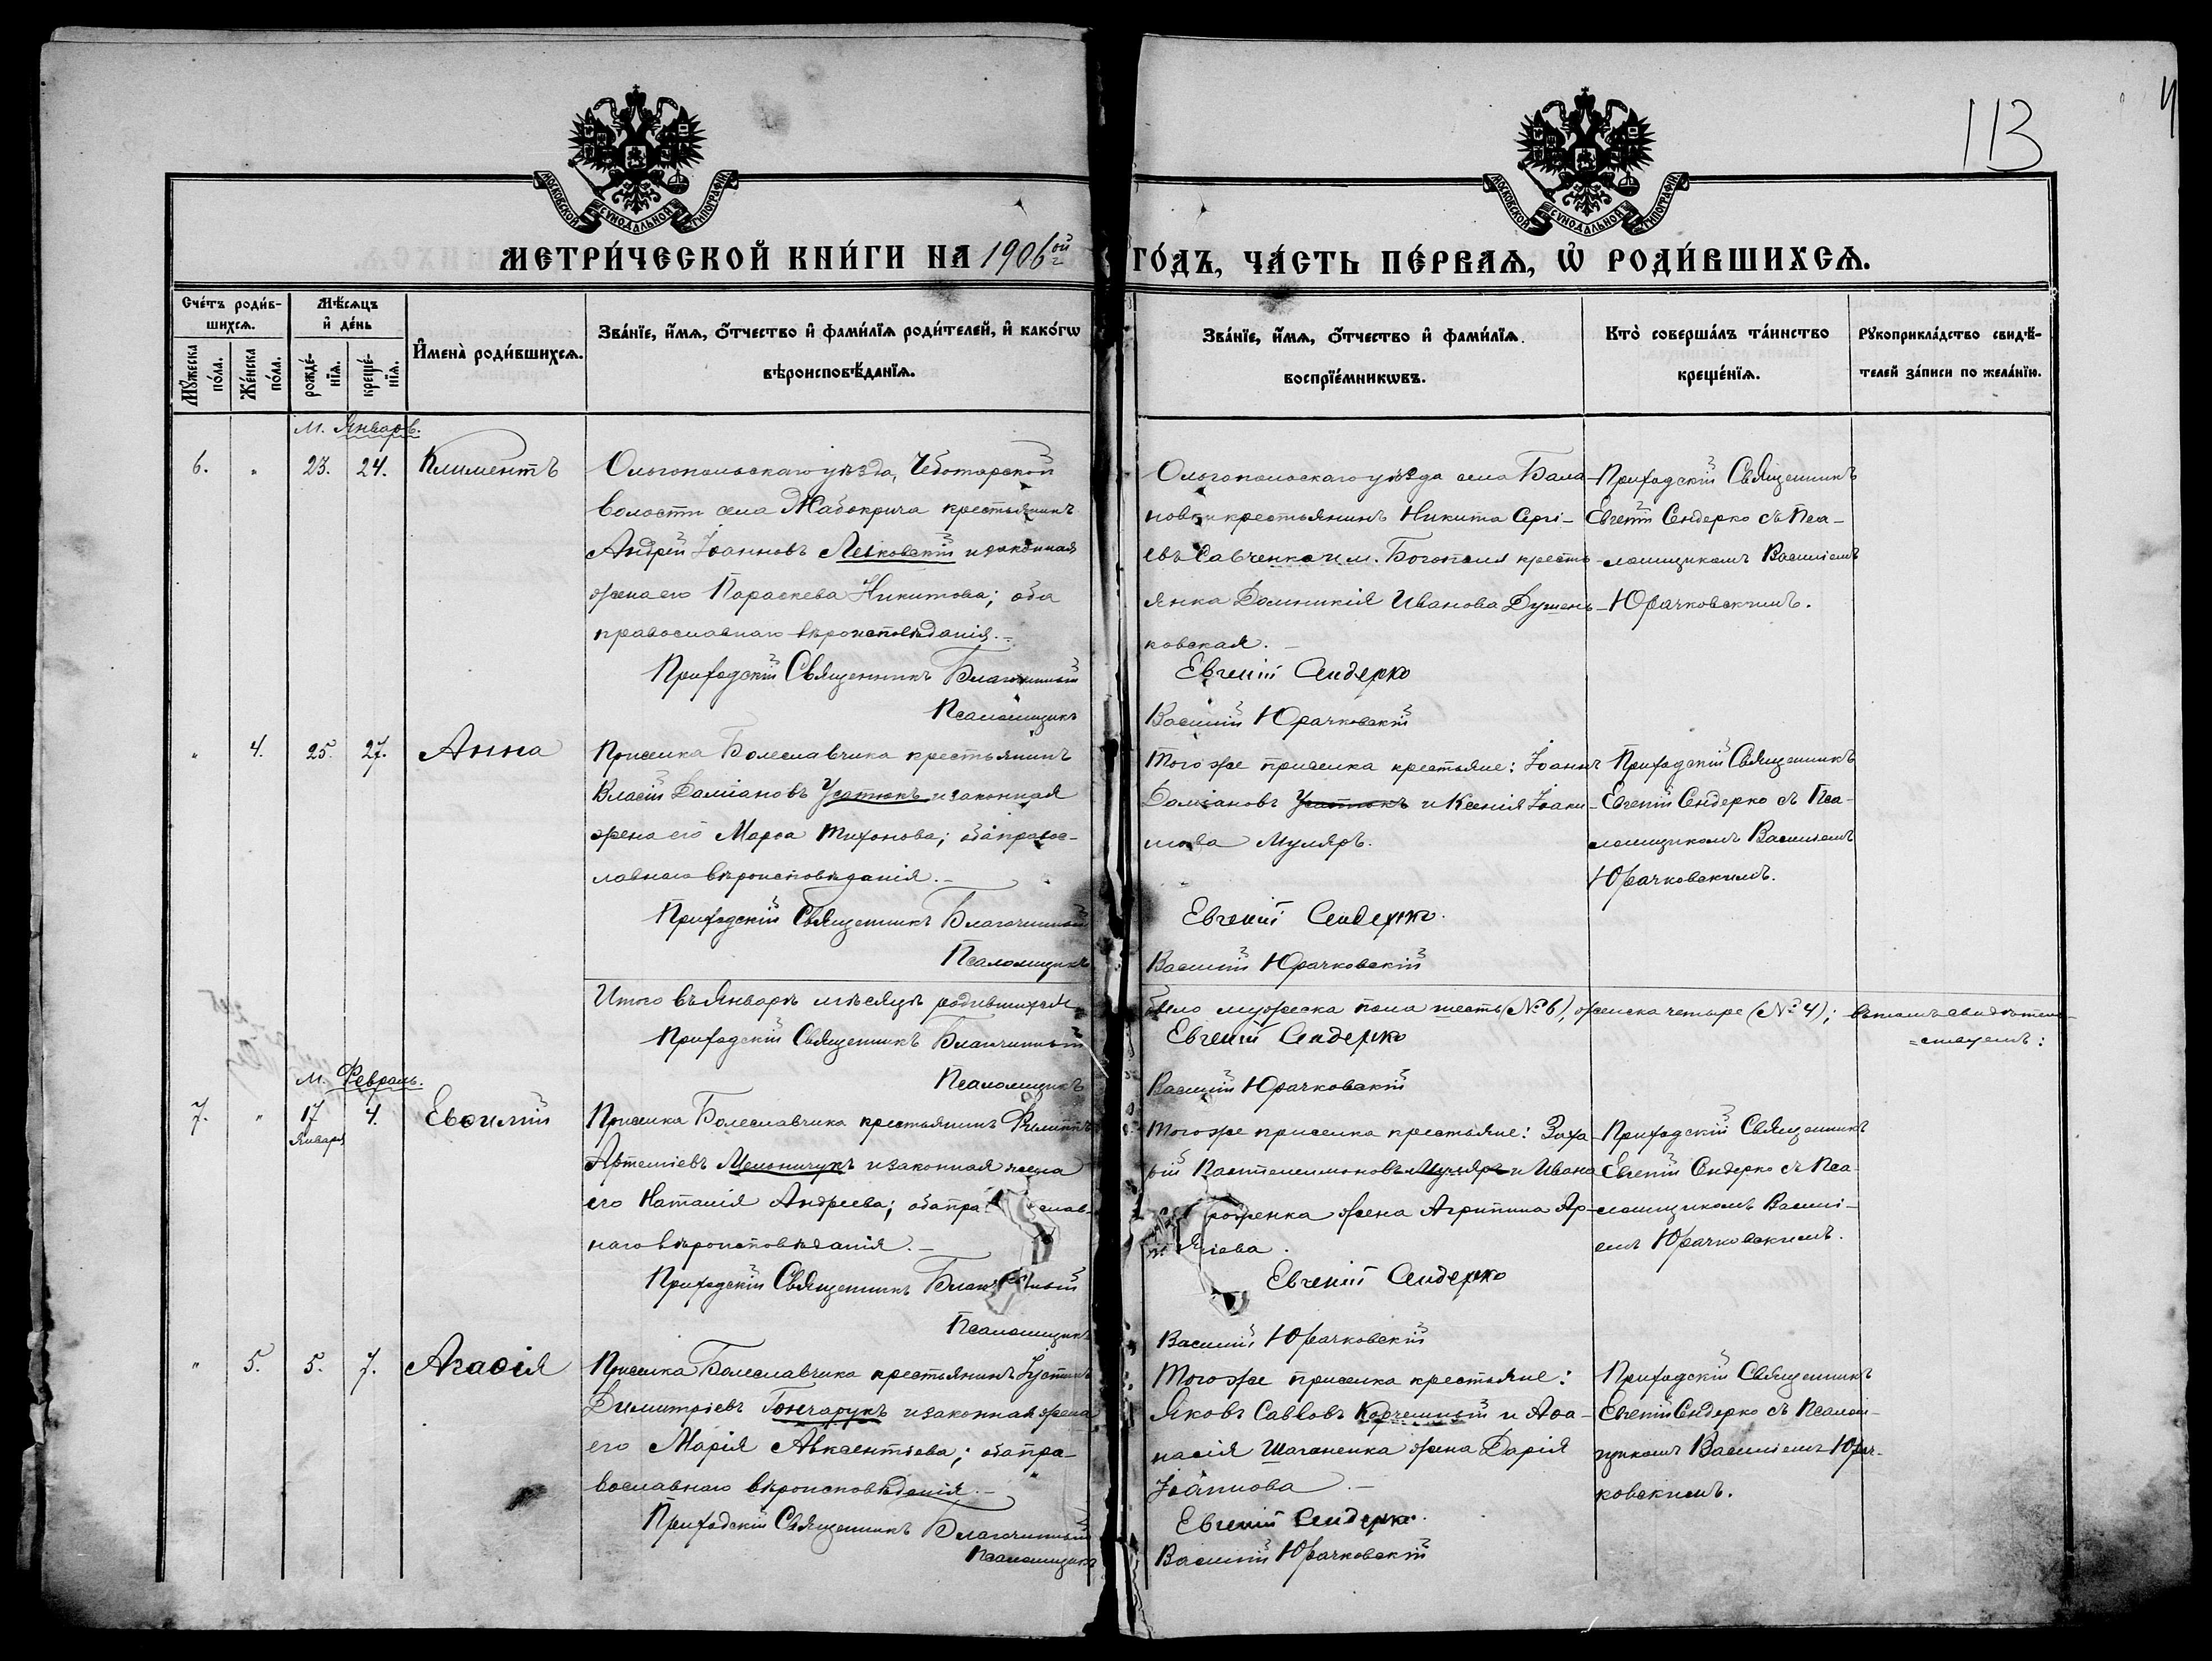 113
МОСКОВСКОЙ СУНОДАЛЬНОЙ ТИПОГРАФІИ
МОСКОВСКОЙ СУНОДАЛЬНОЙ ТИПОГРАФІИ
МЕТРИ́ЧЕСКОЙ КНИ́ГИ НА 1906ой г ГО́ДЪ, ЧА́СТЬ ПЕ́РВАѦ, Ѡ҆ РОДИ́ВШИХСѦ.
Счéтъ роди́в-
шихсѧ.
Мꙋ́жеска по́ла.
Же́нска по́ла.
Мѣ́сѧцъ
и҆ де́нь
рожде́-
нїѧ.
креще́-
нїѧ.
И҆мена̀ роди́вшихсѧ.
Зва́нїе, и҆́мѧ, ѻ҆́тчество и҆ фами́лїѧ роди́телей, и҆ како́гѡ
вѣроисповѣ́данїѧ.
Зва́нїе, и҆́мѧ, ѻ҆́тчество и҆ фами́лїѧ.
воспрїе́мникѡвъ.
Кто̀ соверша́лъ та́инство
креще́нїѧ.
Рꙋкоприкла́дство свидѣ́-
телей за́писи по жела́нїю.
М. Январь.
6. " 23. 24. Климентъ
Ольгопольскаго уѣзда, Чеботарской
волости села Жабокрича крестьянинъ
Андрей Іоанновъ Лесковскій и законная
жена его Параскева Никитова; оба
православнаго вѣроисповѣданія.–
Приходскій Священникъ Благочинный
Псаломщикъ
Ольгопольскаго уѣзда села Бала-
новки крестьянинъ Никита Сергі-
евъ Савченко и м. Богополя кресть-
янка Домникія Иванова Душень-
ковская.–
Евгеній Сендерко
Василій Юрачковскій
Приходскій Священникъ
Евгеній Сендерко съ Пса-
ломщикомъ Василіемъ
Юрачковскимъ.
" 4. 25. 27. Анна
Приселка Болеславчика крестьянинъ
Власій Даміановъ Усатюкъ и законная
жена его Марѳа Тихонова; оба правос-
лавнаго вѣроисповѣданія.–
Приходскій Священникъ Благочинный
Псаломщикъ
Того же приселка крестьяне: Іоаннъ
Даміановъ Усатюкъ и Ксенія Іоаки-
мова Муляръ.
Евгеній Сендерко.
Василій Юрачковскій
Приходскій Священникъ
Евгеній Сендерко съ Пса-
ломщикомъ Василіемъ
Юрачковскимъ.
Итого въ Январѣ мѣсяцѣ родившихся было мужеска пола шесть (№ 6), женска четыре (№ 4); въ томъ свидѣтель-
=ствуемъ:
Приходскій Священникъ Благочинный Евгеній Сендерко
Псаломщикъ Василій Юрачковскій
М. Февраль.
7. " 17 Января 4. Евѳимій
Приселка Болеславчика крестьянинъ Филиппъ
Артеміевъ Мельничукъ и законная жена
его Наталія Андреева; оба пра слав-
наго вѣроисповѣданія.–
Приходскій Священникъ Благочинный
Псаломщикъ
Того же приселка крестьяне: Заха-
рій Пантелеимоновъ Муляръ и Ивана
роженка жена Агрипина Ар-
іева.
Евгеній Сендерко
Василій Юрачковскій
Приходскій Священникъ
Евгеній Сендерко съ Пса-
ломщикомъ Васили-
емъ Юрачковскимъ.
" 5. 5. 7. Агаѳія
Приселка Болеславчика крестьянинъ Іустинъ
Димитріевъ Гончарукъ и законная жена
его Марія Авксентіева; оба пра-
вославнаго вѣроисповѣданія.–
Приходскій Священникъ Благочинный
Псаломщикъ
Того же приселка крестьяне:
Яковъ Саввовъ Корчемный и Аѳа-
насія Шаганенка жена Дарія
Іоаннова.–
Евгеній Сендерко.
Василій Юрачковскій
Приходскій Священникъ
Евгеній Сендерко съ Псалом-
щикомъ Василіемъ Юрач-
ковскимъ.